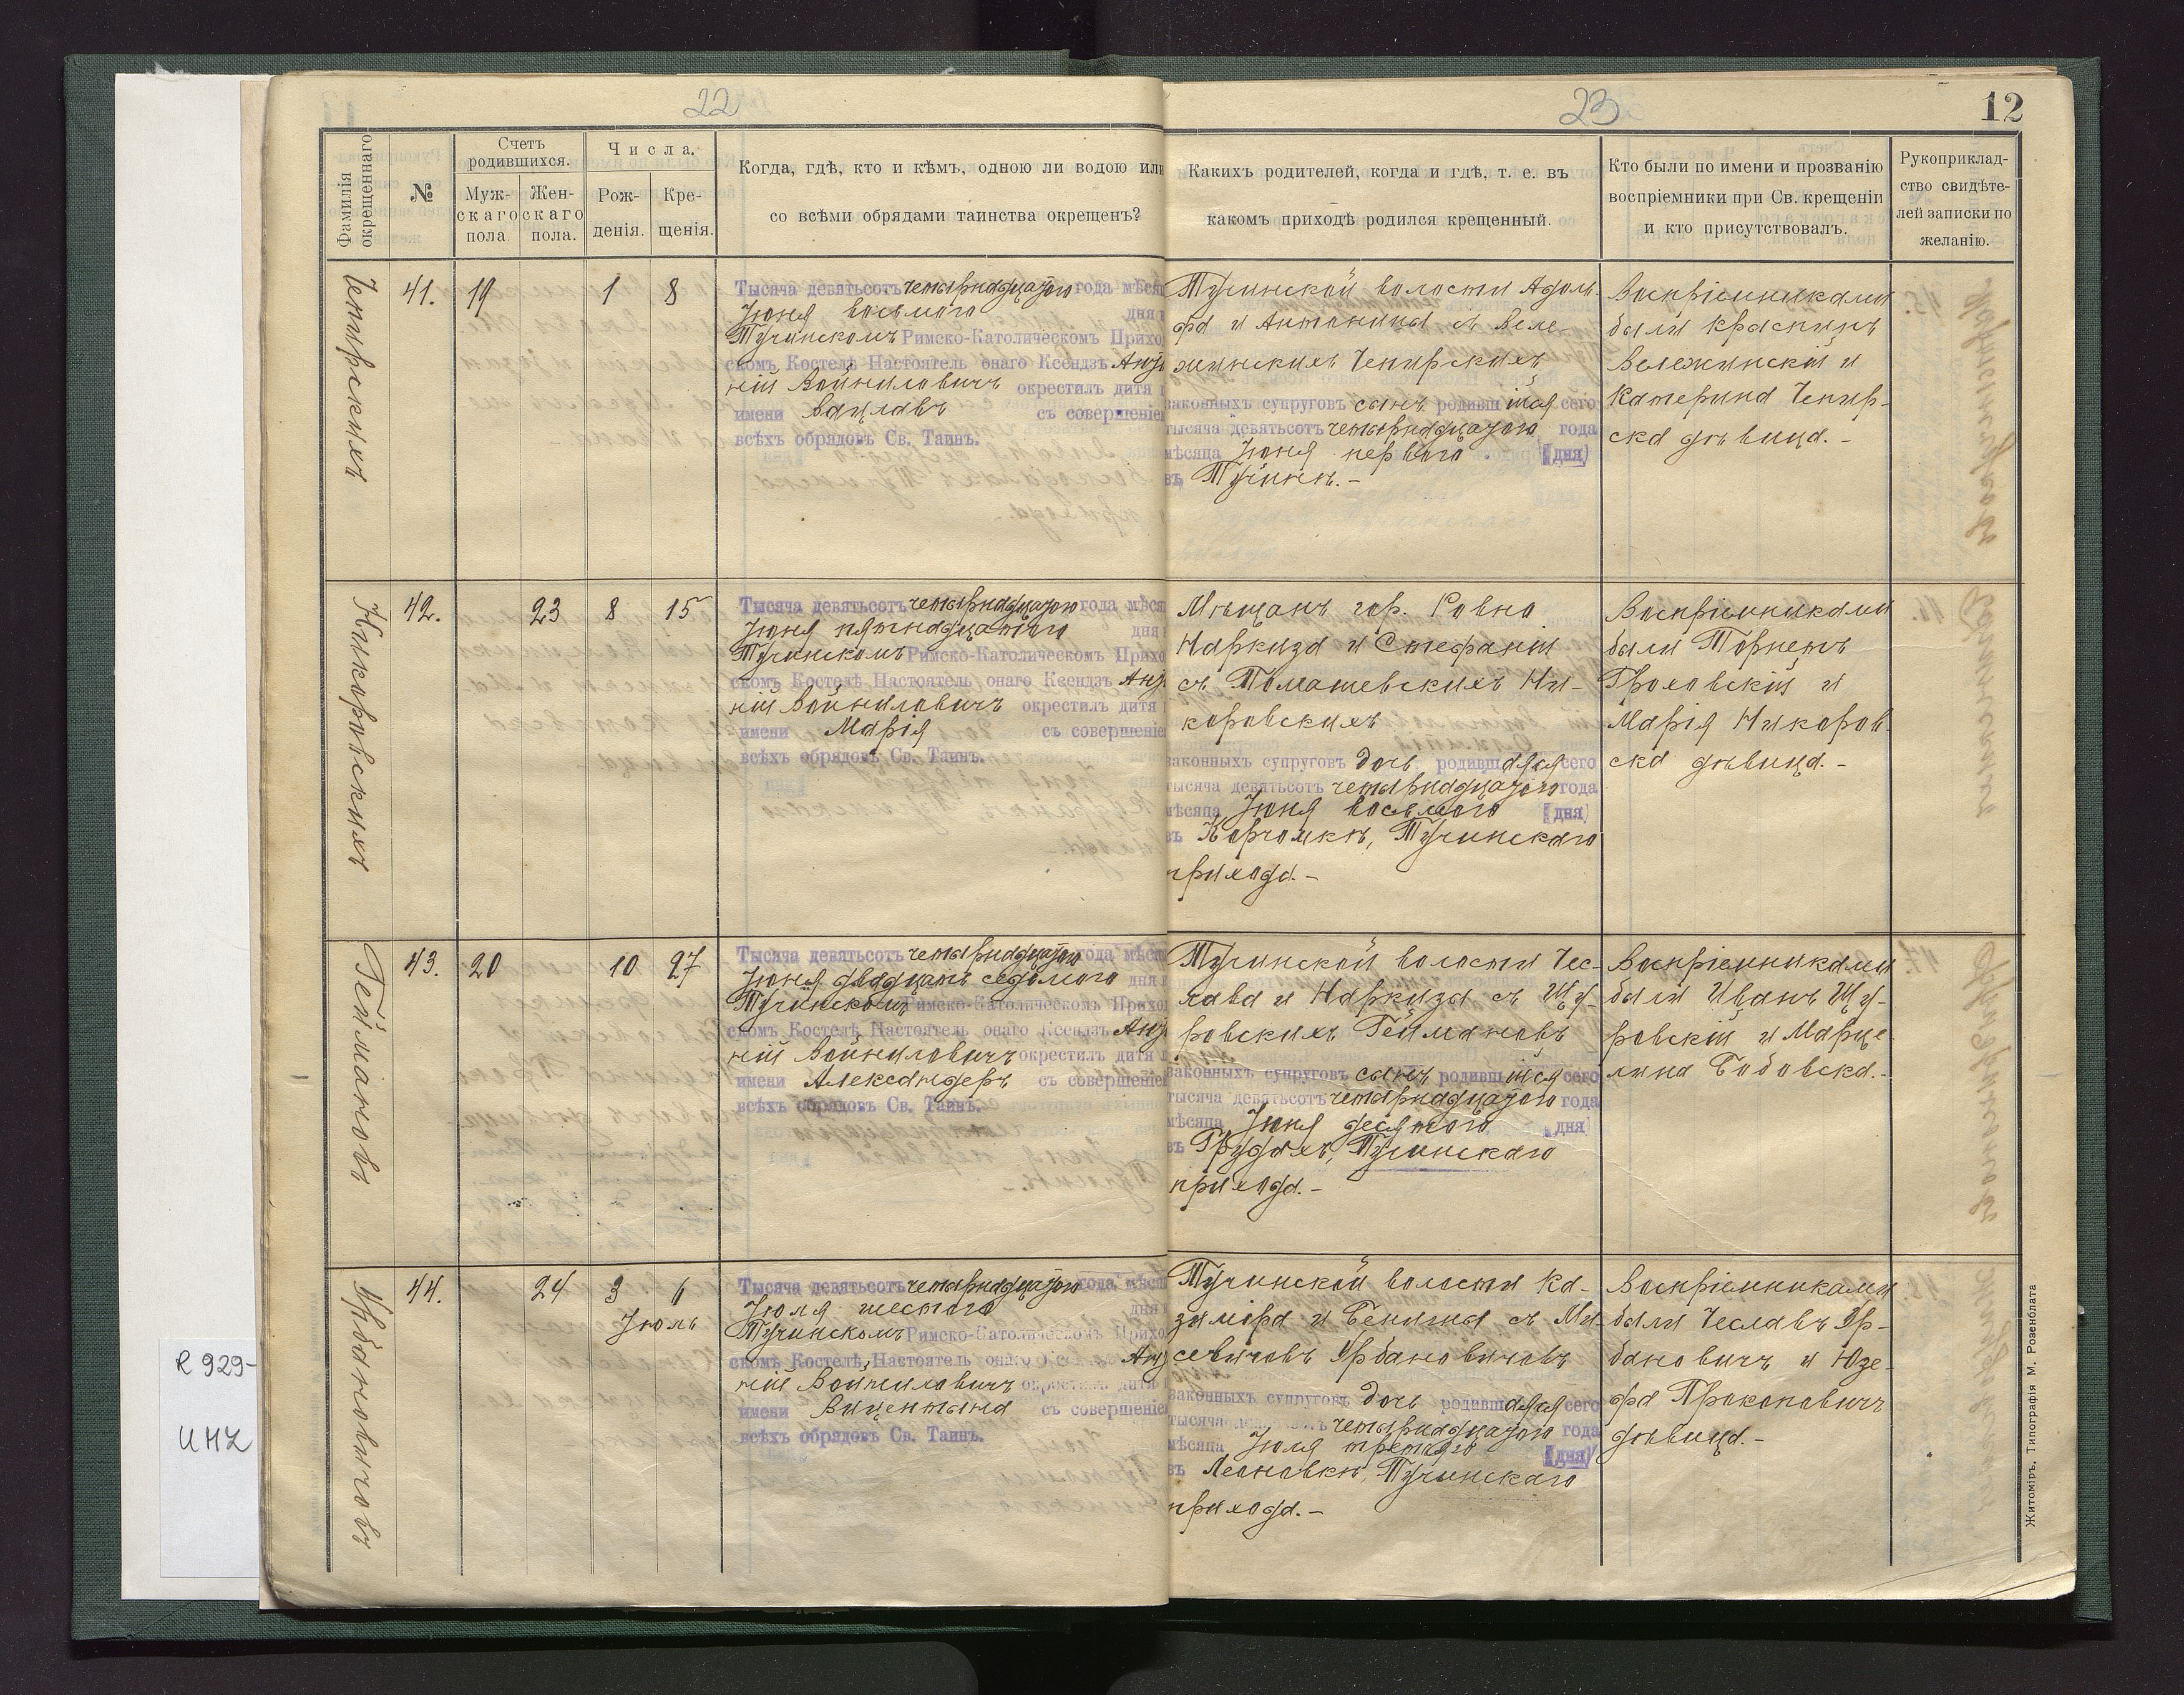 22
23
12
Фамилія окрещеннаго
№
Счетъ родившихся.
Муж-
скаго
пола.
Жен-
скаго
пола.
Числа.
Рож-
денія.
Кре-
щенія.
Когда, гдѣ, кто и кѣмъ, одною ли водою или
со всѣми обрядами таинства окрещенъ?
Какихъ родителей, когда и гдѣ, т. е. въ
какомъ приходѣ родился крещенный.
Кто были по имени и прозванію
воспріемники при Св. крещеніи
и кто присутствовалъ.
Рукоприклад-
ство свидѣте-
лей записки по
желанію.
Чепирскихъ
41. 19 1 8
Тысяча девятьсотъ четырнадцатого года мѣся
Іюня восьмого дня
Тучинскомъ Римско-Католическомъ Прихо
скомъ Костелѣ Настоятель онаго Ксендзъ Анто
ній Войниловичъ окрестилъ дитя
имени Вацлавъ съ совершеніе
всѣхъ обрядовъ Св. Таинъ.
Тучинской волости Адоль-
фа и Антонины съ Веле-
жинскихъ Чепирскихъ
законныхъ супруговъ сынъ родившійся сего
тысяча девятьсотъ четырнадцатого года
мѣсяца Іюня перваго (дня)
въ Тучинѣ.-
Воспріемниками
были Криспинъ
Вележинскій и
Катерина Чепир-
ска дѣвица.-
Никоровскихъ
42. 23 8 15
Тысяча девятьсотъ четырнадцатого года мѣся
Іюня пятнадцатого дня
Тучинскомъ Римско-Католическомъ Прихо
скомъ Костелѣ Настоятель онаго Ксендзъ Анто
ній Войниловичъ окрестилъ дитя
имени Марія съ совершеніе
всѣхъ обрядовъ Св. Таинъ.
Мѣщанъ гор. Ровно
Наркиза и Стефаніи
съ Томашевскихъ Ни-
коровскихъ
законныхъ супруговъ дочь родившаяся сего
тысяча девятьсотъ четырнадцатого года
мѣсяца Іюня восьмого (дня)
въ Корчомкѣ, Тучинскаго
прихода.-
Воспріемниками
были
Гроховскій и
Марія Никоров-
ска дѣвица.-
Геймановъ
43. 20 10 27
Тысяча девятьсотъ четырнадцатого года мѣся
Іюня двадцать седьмого дня
Тучинскомъ Римско-Католическомъ Прихо
скомъ Костелѣ Настоятель онаго Ксендзъ Анто
ній Войниловичъ окрестилъ дитя
имени Александеръ съ совершеніе
всѣхъ обрядовъ Св. Таинъ.
Тучинской волости Чес-
лава и Наркизы съ Щу-
ровскихъ Геймановъ
законныхъ супруговъ сынъ родившійся сего
тысяча девятьсотъ четырнадцатого года
мѣсяца Іюня десятого (дня)
въ Грудахъ, Тучинскаго
прихода.-
Воспріемниками
были Иванъ Щу-
ровскій и Марце-
лина Бобовска.-
Урбановичовъ
44. 24 3 6
Іюль
Тысяча девятьсотъ четырнадцатого года мѣся
Іюля шестого дня
Тучинскомъ Римско-Католическомъ Прихо
скомъ Костелѣ Настоятель онаго Анто
ній Войниловичъ окрестилъ дитя
имени Вицентына съ совершеніе
всѣхъ обрядовъ Св. Таинъ.
Тучинской волости Ка-
зиміра и Бенигны съ Ми-
севичовъ Урбановичовъ
законныхъ супруговъ дочь родившаяся сего
тысяча четырнадцатого года
мѣсяца Іюля третяго (дня)
въ Леоновкѣ, Тучинскаго
прихода.-
Воспріемниками
были Чеславъ Ур-
бановичъ и Юзе-
фа Прокоповичъ
дѣвица.-
Житоміръ, Типографія М. Розенблата
R 929-
UMZ